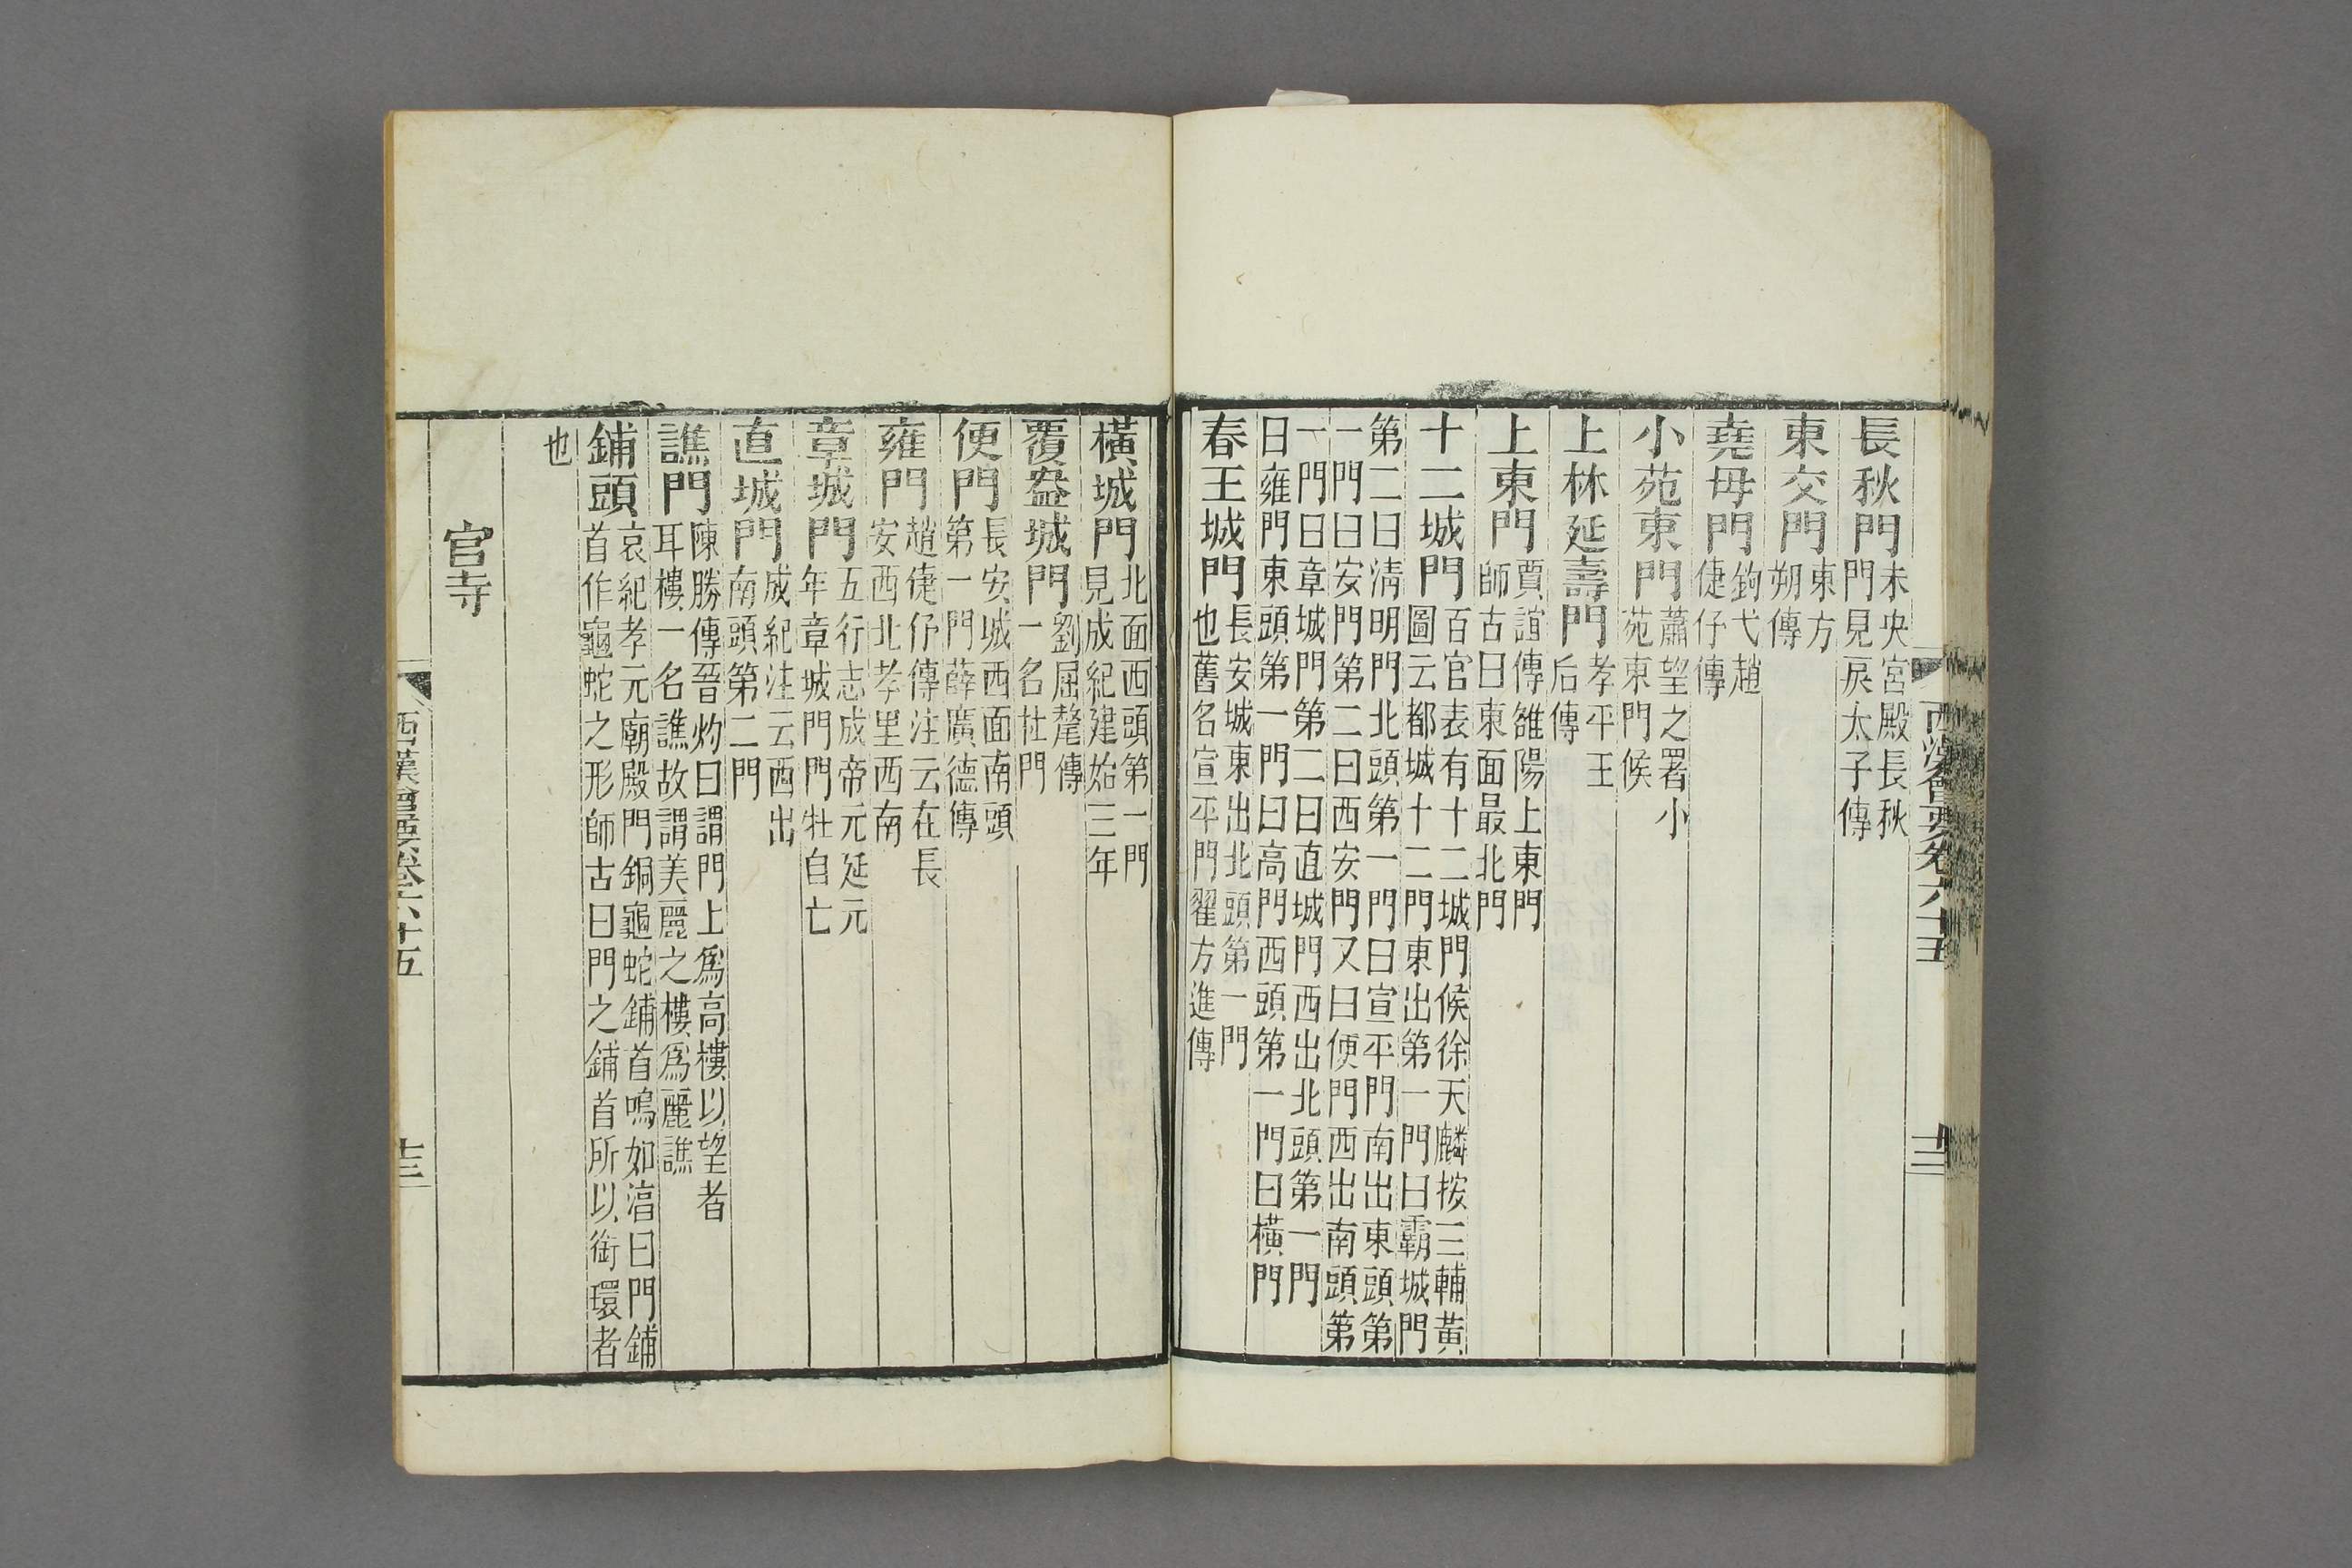 長秋門未央宮殿長秋門見戾太子傳
東交門東方朔傳
堯母門鉤弋趙倢仔傳
小苑東門蕭望之署小苑東門候
上林延壽門孝平王后傳
上東門賈誼傳雒陽上東門師古曰東面最北門
十二城門百官表有十二城門候徐天麟按三輔黃圖云都城十二門東出第一門曰霸城門
第二曰淸明門北頭第一門曰宣平門南出東頭第一門曰安門第二曰西安門又曰便門西出南頭第
一門曰章城門第二曰直城門西出北頭第一門曰雍門東頭第一門曰高門西頭第一門曰橫門
春王城門長安城東出北頭第一門也舊名宣平門翟方進傳
橫城門北面西頭第一門見成紀建始三年
覆盎城門劉屈氂傳一名杜門
便門長安城西面南頭第一門薛廣德傳
雍門趙倢仔傳注云在長安西北孝里西南
章城門五行志成帝元延元年章城門門牡自亡
直城門成紀注云西出南頭第二門
譙門陳勝傳晉灼曰謂門上爲高樓以望者耳樓一名譙故謂美麗之樓爲麗譙
鋪頭哀紀孝元廟殿門銅龜蛇鋪首鳴如湻曰門鋪首作龜蛇之形師古曰門之鋪首所以銜環者
也
官寺
西漢會要卷六十五
十二
西漢會要卷六十五
十三